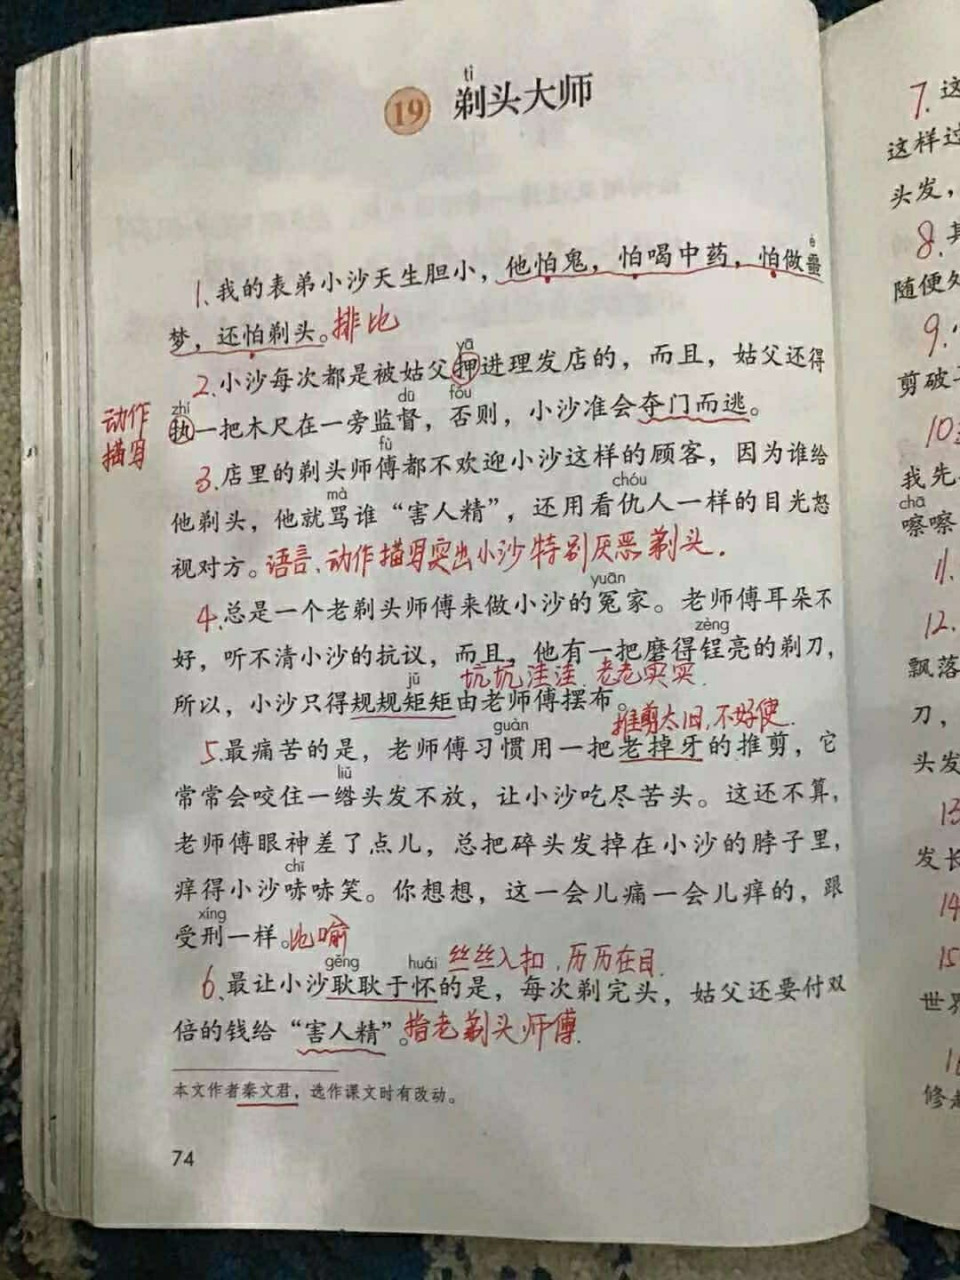 tì
19 剃头大师
è
1. 我的表弟小沙天生胆小，他怕鬼，怕喝中药，怕做噩
梦，还怕剃头。排比
yā
2. 小沙每次都是被姑父押进理发店的，而且，姑父还得
动作
描写
zhí dū fǒu
执一把木尺在一旁监督，否则，小沙准会夺门而逃。
fù
3. 店里的剃头师傅都不欢迎小沙这样的顾客，因为谁给
mà chóu
他剃头，他就骂谁“害人精”，还用看仇人一样的目光怒
视对方。语言、动作描写突出小沙特别厌恶剃头.
yuān
4. 总是一个老剃头师傅来做小沙的冤家。老师傅耳朵不
zèng
好，听不清小沙的抗议，而且，他有一把磨得锃亮的剃刀，
jǔ 坑坑洼洼. 老老实实.
所以，小沙只得规规矩矩由老师傅摆布。
guàn 推剪太旧,不好使.
5. 最痛苦的是，老师傅习惯用一把老掉牙的推剪，它
liǔ
常常会咬住一绺头发不放，让小沙吃尽苦头。这还不算，
老师傅眼神差了点儿，总把碎头发掉在小沙的脖子里，
chī
痒得小沙哧哧笑。你想想，这一会儿痛一会儿痒的，跟
xíng
受刑一样。比喻
gěng huái 丝丝入扣.历历在目.
6. 最让小沙耿耿于怀的是，每次剃完头，姑父还要付双
倍的钱给“害人精”。指老剃头师傅.
本文作者秦文君，选作课文时有改动。
74
7. 这
这样过
头发，
8. 其
随便
9.
剪破
10
我先
chā
嚓嚓
11.
12.
飘落
刀，
头发
13
发长
14
15
世界
16
修